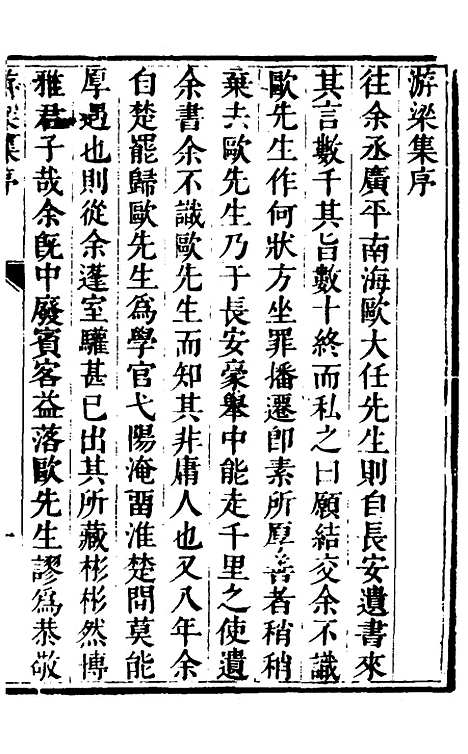 游梁集序
往余丞廣平南海歐大任先生則自長安遺書來
其言數千其旨數十終而私之曰願結交余不識
歐先生作何狀方坐罪播遷卽素所厚善者稍稍
棄去歐先生乃于長安豪舉中能走千里之使遺
余書余不識歐先生而知其非庸人也又八年余
自楚罷歸歐先生爲學官弋陽淹畱淮楚間莫能
厚遇也則從余蓬室驩甚已出其所藏彬彬然博
雅君子哉余旣中廢賓客益落歐先生謬爲恭敬
游梁集序
一